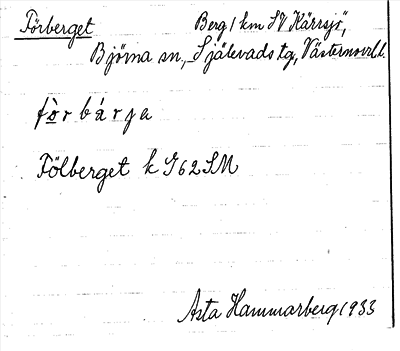 Förberget Berg 1 km SV Kärrsjö,
Björna sn, Själevads tg, Västernorrl.l.
fö̀r bár̀ja
Fölberget k G62SM
Asta Hammarberg 1933